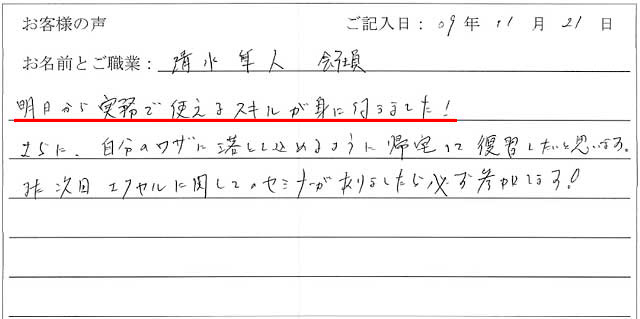 お客様の声 ご記入日：09年 11月 21日
お名前とご職業：清水隼人 会社員
明日から実務で使えるスキルが身に付きました！
さらに、自分のワザに落とし込めるように帰宅って復習したいと思います。
また次回エクセルに関してのセミナーがありましたら必ず参加します！